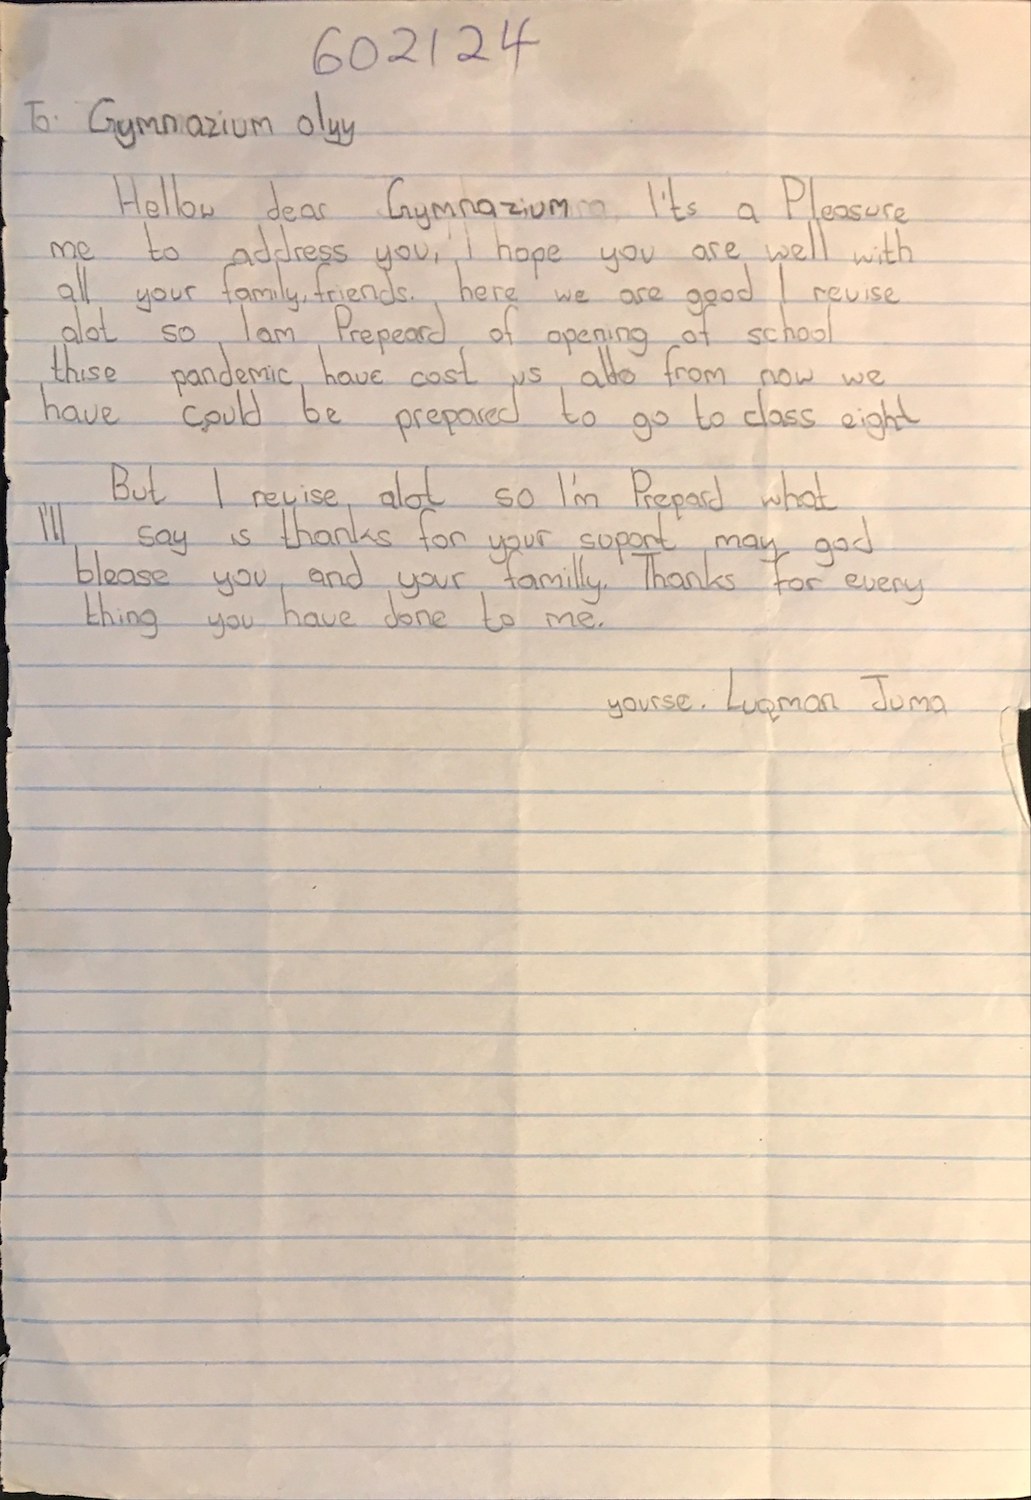 602124
To: Gymnazium olyy
Hellow dear Gymnazium I'ts a Pleasure
me to address you, I hope you are well with
all your family, friends. here we are good I revise
alot so I am Prepeard of opening of school
thise pandemic have cost us alto from now we
have could be prepared to go to class eight
But I revise alot so I'm Prepard what
I'll say is thanks for your soport may god
blease you and your familly. Thanks for every
thing you have done to me.
yourse. Luqman Juma